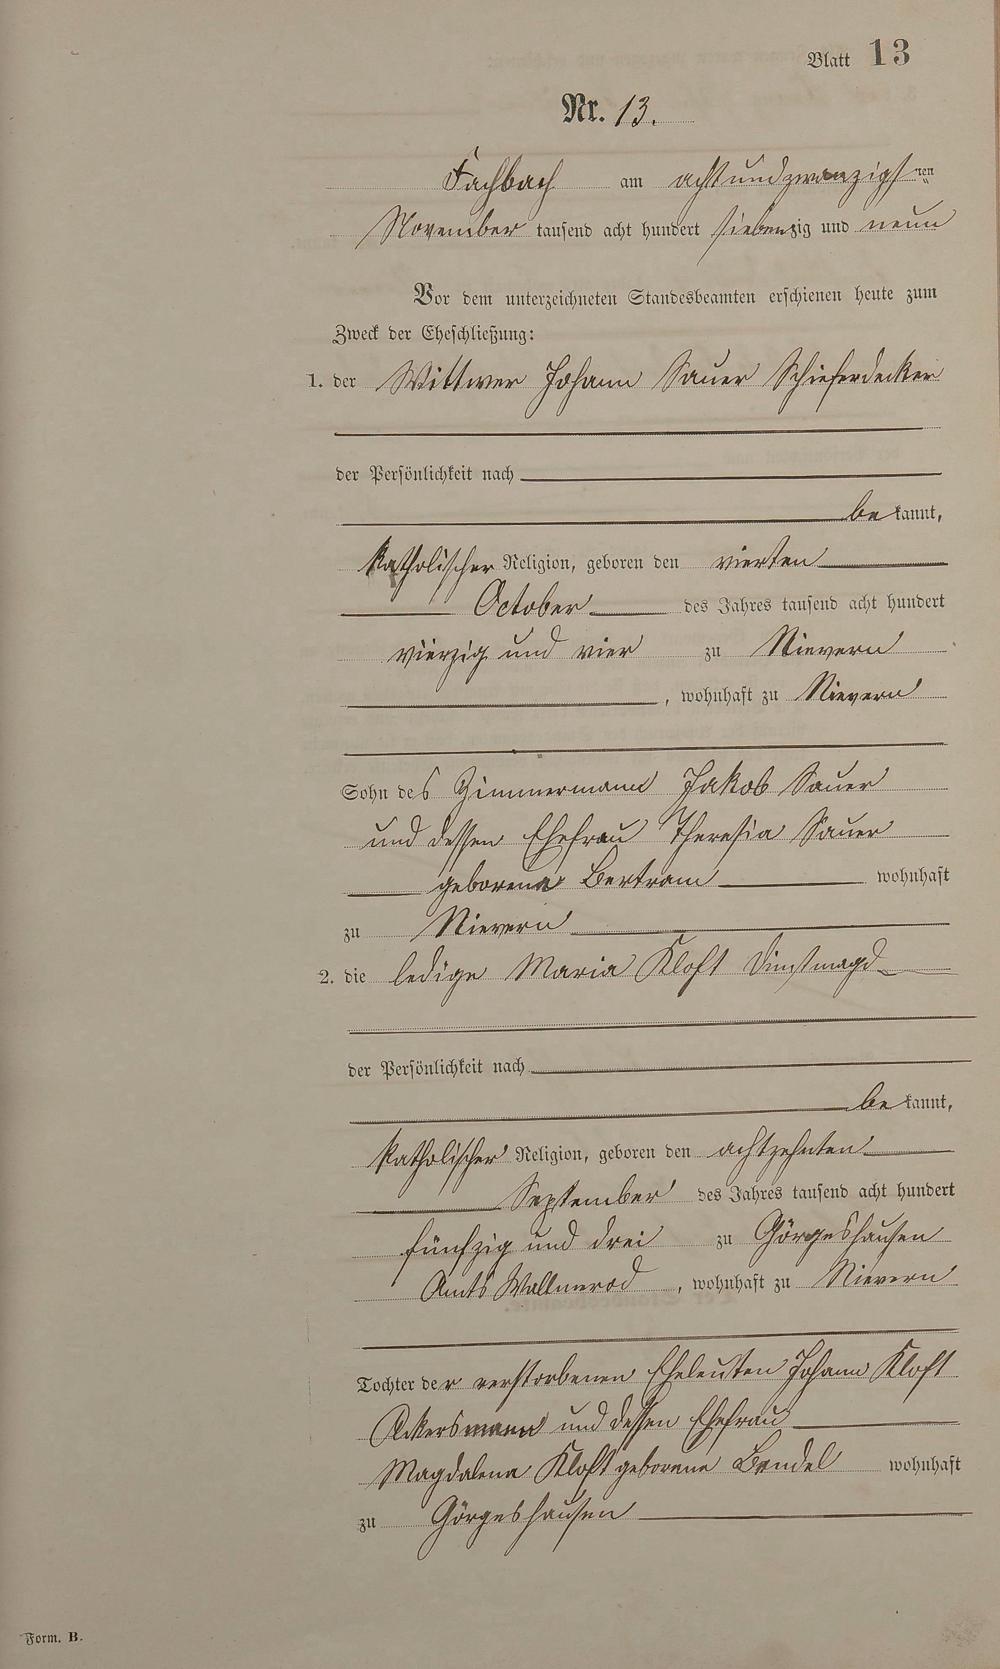 Blatt 13
Nr. 13.
Fachbach am achtundzwanzigsten
November tausend acht hundert siebenzig und neun
Vor dem unterzeichneten Standesbeamten erschienen heute zum
Zweck der Eheschließung:
1. der Wittwer Johann Sauer Schieferdecker
der Persönlichkeit nach
be kannt,
katholischer Religion, geboren den vierten
October des Jahres tausend acht hundert
vierzig und vier zu Nievern
, wohnhaft zu Nievern
Sohn des Zimmermann Jakob Sauer
und dessen Ehefrau Theresia Sauer
geborene Bertram wohnhaft
zu Nievern
2. die ledige Maria Kloft Dinstmagd
der Persönlichkeit nach
be kannt,
katholischer Religion, geboren den achtzehnten
September des Jahres tausend acht hundert
fünfzig und drei zu Görgeshausen
Amts Wallmerod , wohnhaft zu Nievern
Tochter der verstorbenen Eheleuten Johann Kloft
Ackersmann und dessen Ehefrau
Magdalena Kloft geborene Bendel wohnhaft
zu Görgeshausen
Form. B.